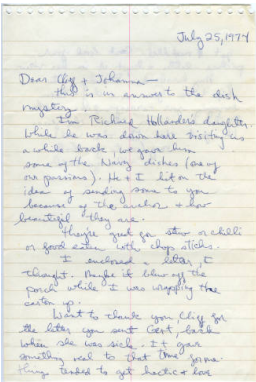 July 25, 1974
Dear Clif & Johanna—
This is in answer to the dish
mystery.
I'm Richard Hollander's daughter.
While he was down here visiting us
a while back, we gave him
some of the Navy dishes (one of
our passions). He & I hit on the
idea of sending some to you
because of the anchor & how
beautiful they are.
They're great for stew or chilli
or good eaten with chop sticks.
I enclosed a letter, I
thought. Maybe it blew off the
porch while I was wrapping the
carton up.
Want to thank you, Clif for
the letter you sent Gert, back
when she was sick. It gave
something real to that time
things tended to get hectic & love